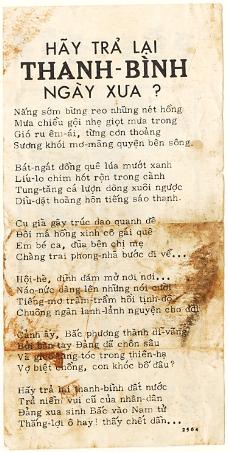 HÃY TRẢ LẠI
THANH-BÌNH
NGÀY XƯA ?
Nắng sớm bừng reo những nét hồng
Mưa chiều gội nhẹ giọt mưa trong
Gió ru êm-ái, từng cơn thoảng
Sương khói mơ-màng quyện bên sông.
Bát-ngát đồng quê lúa mướt xanh
Líu-lo chim hót rộn trong cành
Tung-tăng cá lượn dòng xuôi ngược
Dìu-dặt hoàng hôn tiếng sáo thanh.
Cụ già gậy trúc dạo quanh đê
Đôi má hồng xinh cô gái quê
Em bé ca, đùa bên chị mẹ
Chàng trai phong-nhã bước đi về...
Hội-hè, đình đám mở nơi nơi...
Náo-nức dâng lên những nói cười
Tiếng-mõ trầm-trầm hồi tịnh-độ
Chuông ngân lanh-lảnh nguyện cho đời
Cảnh ấy, Bắc phương thành dĩ-vãng
Bởi bàn tay Đảng đã chôn sâu
Và gieo tang-tóc trong thiên-hạ
Vợ biệt chồng, con khóc bố đâu?
Hãy trả lại thanh-bình đất nước
Trả niềm vui cũ của nhân-dân
Đảng xua sinh Bắc vào Nam tử
Thắng-lợi ô hay! thấy chết dần...
2564